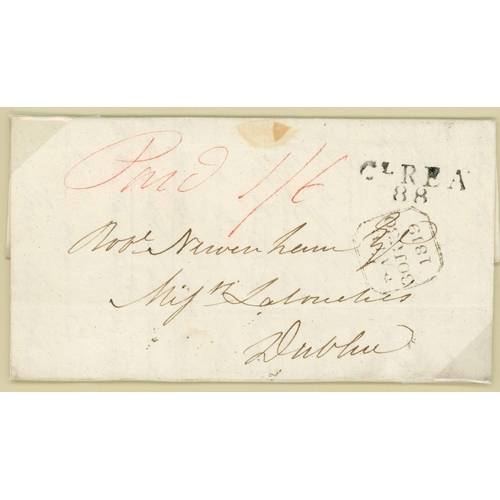 Paid 1/6
CL REA
88
Robt. Newenham Esq
Messrs Latouches
Dublin
1819